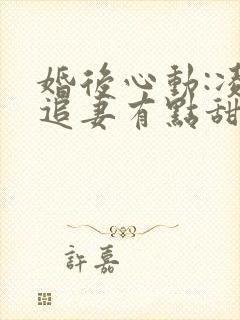 婚後心動:凌
追妻有點甜
許嘉